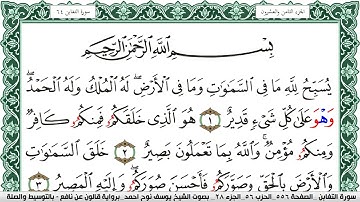 الجزء الثامن والعشرون
سورة التغابن ٦٤
بِسْمِ اللَّهِ الرَّحْمَٰنِ الرَّحِيمِ
يُسَبِّحُ لِلَّهِ مَا فِي السَّمَٰوَٰتِ وَمَا فِي الْأَرْضِ لَهُ الْمُلْكُ وَلَهُ الْحَمْدُ
وَهْوَ عَلَىٰ كُلِّ شَيْءٍ قَدِيرٌ ١ هُوَ الَّذِي خَلَقَكُمْ فَمِنكُمْ كَافِرٌ
وَمِنكُم مُّؤْمِنٌ وَاللَّهُ بِمَا تَعْمَلُونَ بَصِيرٌ ٢ خَلَقَ السَّمَٰوَٰتِ
وَالْأَرْضَ بِالْحَقِّ وَصَوَّرَكُمْ فَأَحْسَنَ صُوَرَكُمْ وَإِلَيْهِ الْمَصِيرُ ٣
سورة التغابن - الصفحة ٥٥٦ - الحزب ٥٦ - الجزء ٢٨ - بصوت الشيخ يوسف نوح احمد - برواية قالون عن نافع - بالتوسيط والصلة